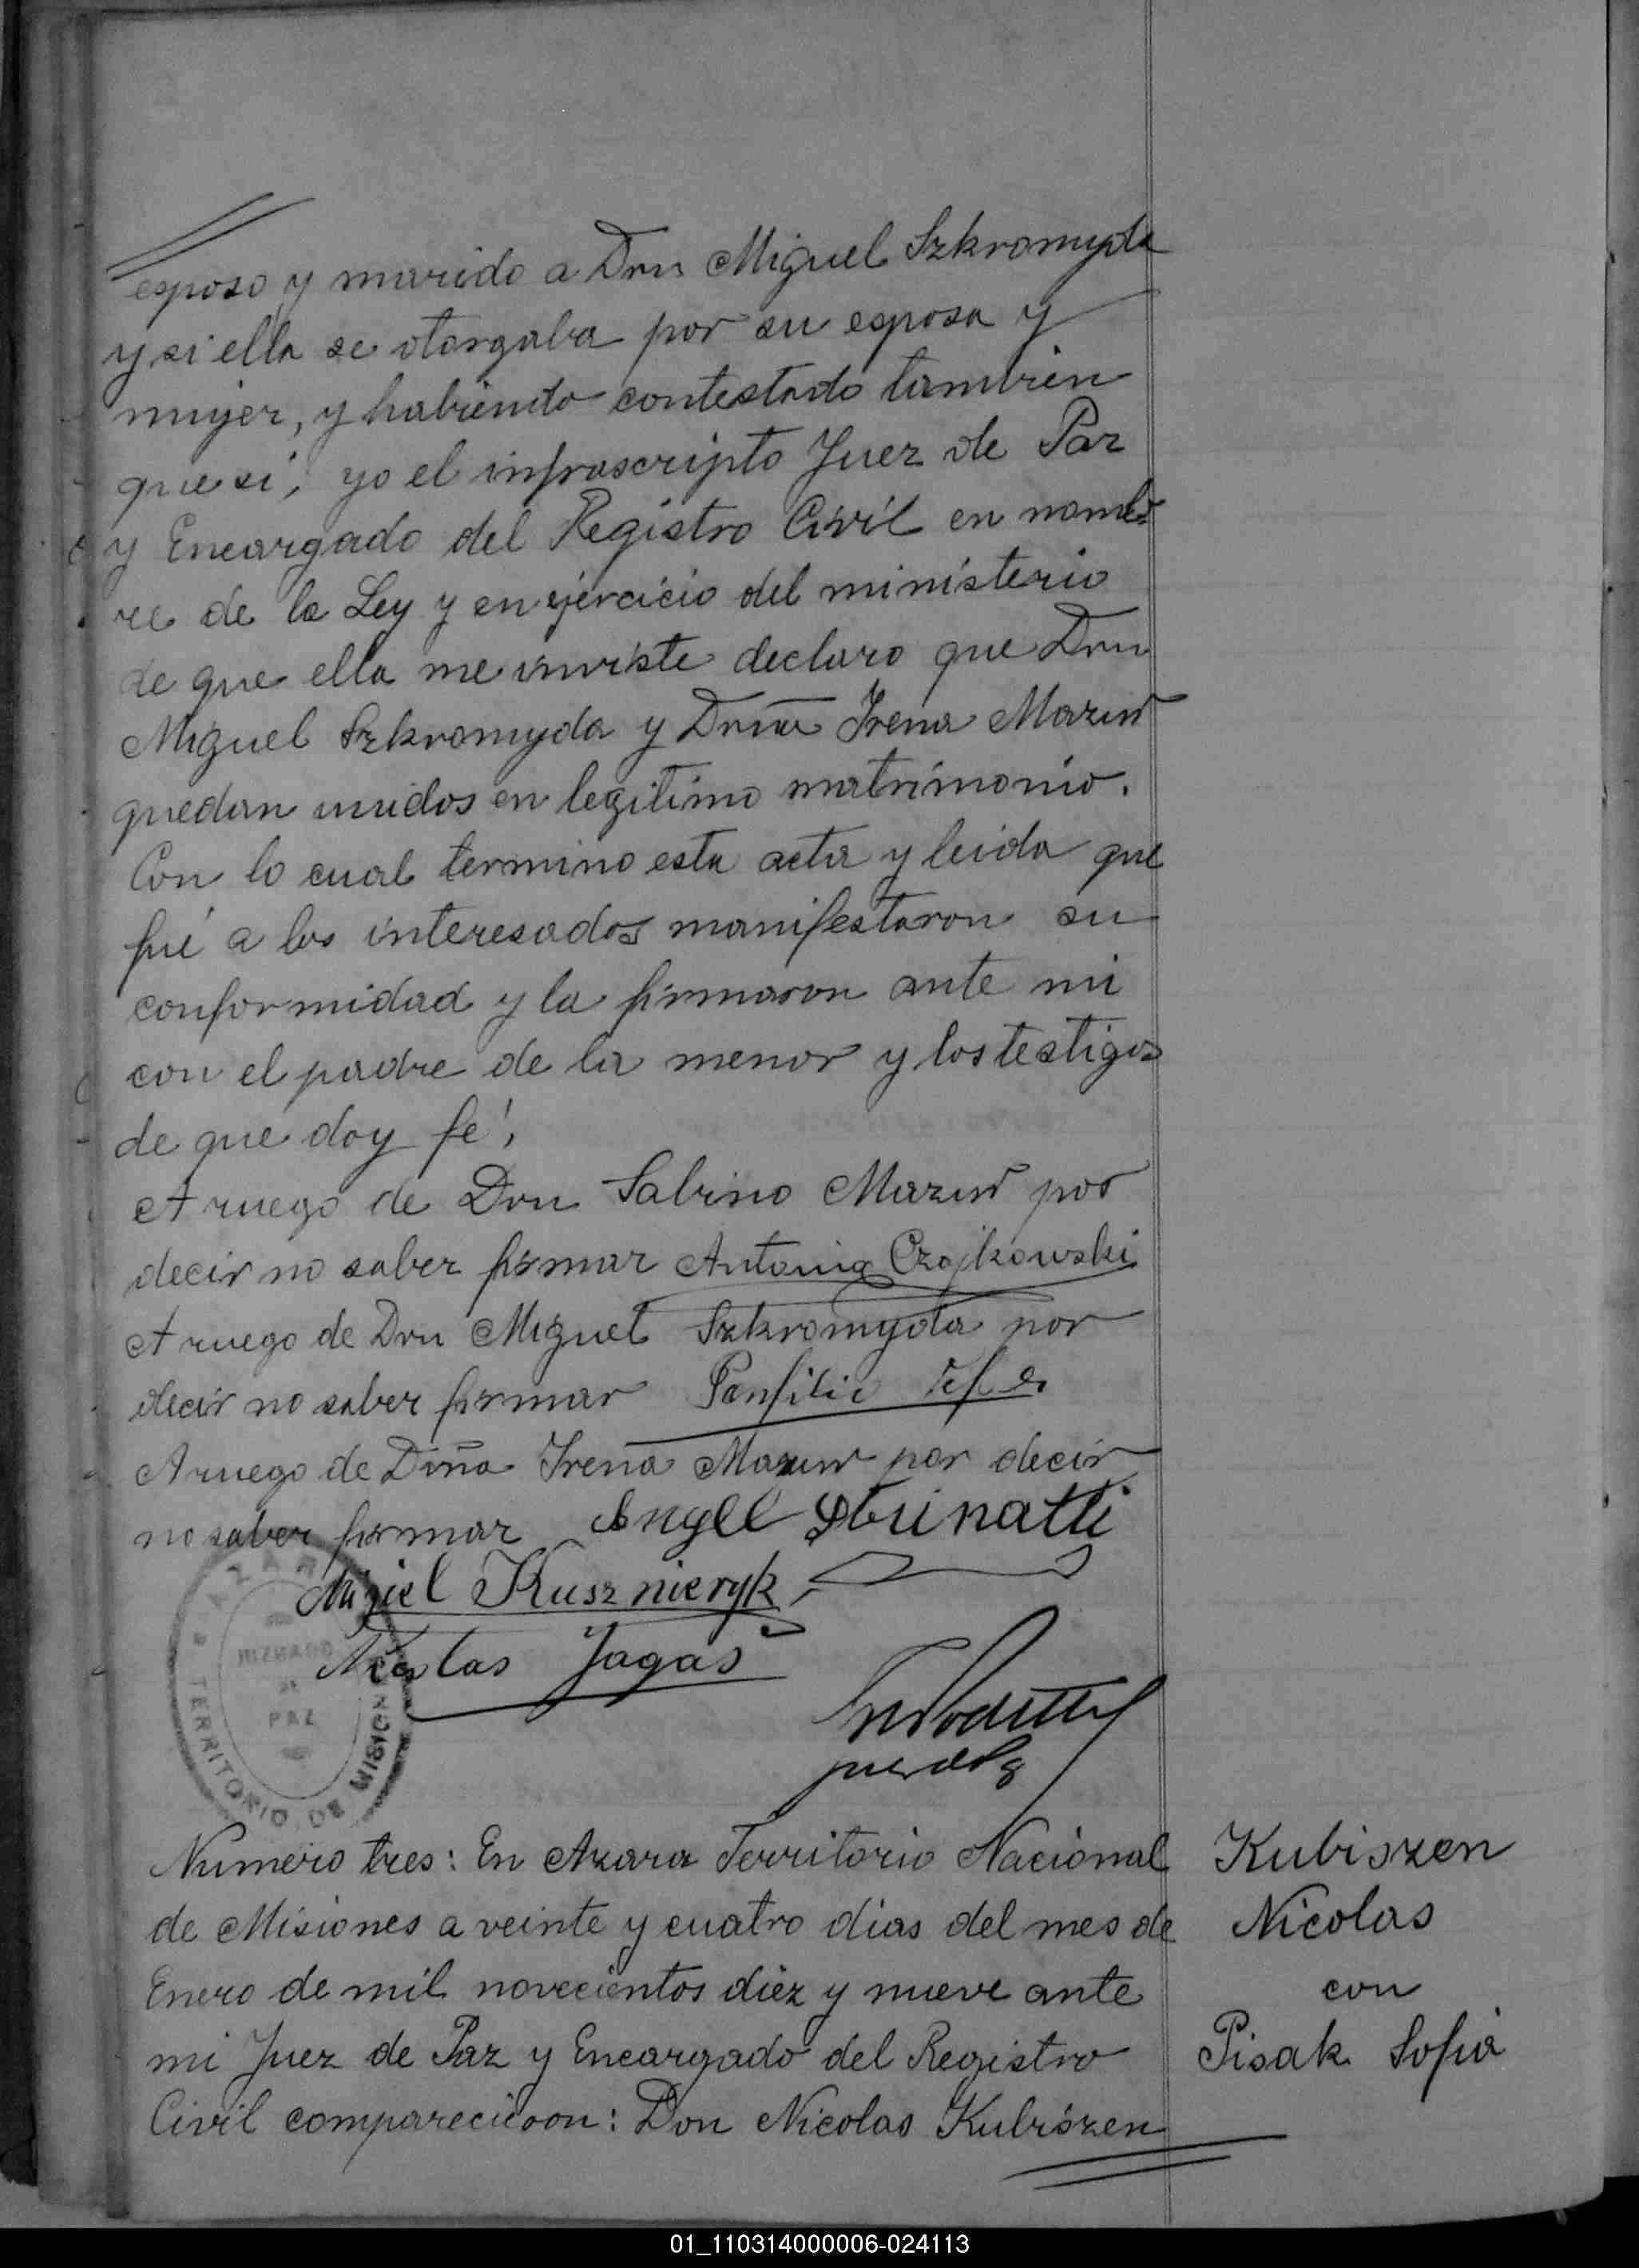 esposo y marido a Don Miguel Szkromyda
y si ella se otorgaba por su esposa y
mujer, y habiendo contestado tambien
que si, yo el infrascripto Juez de Paz
y Encargado del Registro Civil en nomb
re de la Ley y en ejercicio del ministerio
de que ella me inviste declaro que Don
Miguel Szkromyda y Doña Irena Mazur
quedan unidos en legitimo matrimonio.
Con lo cual termino esta acta y leida que
fué a los interesados manifestaron su
conformidad y la firmaron ante mi
con el padre de la menor y los testigos
de que doy fé,
A ruego de Don Sabino Mazur por
decir no saber firmar Antonio Czajkowski
A ruego de Don Miguel Szkromyda por
decir no saber firmar Panfilio
A ruego de Doña Irena Mazur por decir
no saber firmar Angel
Miguel Kusznieryk
Nicolas Jagas
AZARA
JUZGADO
DE
PAZ
TERRITORIO DE MISIONES
Juez de Paz
Numero tres: En Azara Territorio Nacional
de Misiones a veinte y cuatro dias del mes de
Enero de mil novecientos diez y nueve ante
mi Juez de Paz y Encargado del Registro
Civil comparecieron: Don Nicolas Kubiszen
Kubiszen
Nicolas
con
Pisak Sofia
01_110314000006-024113